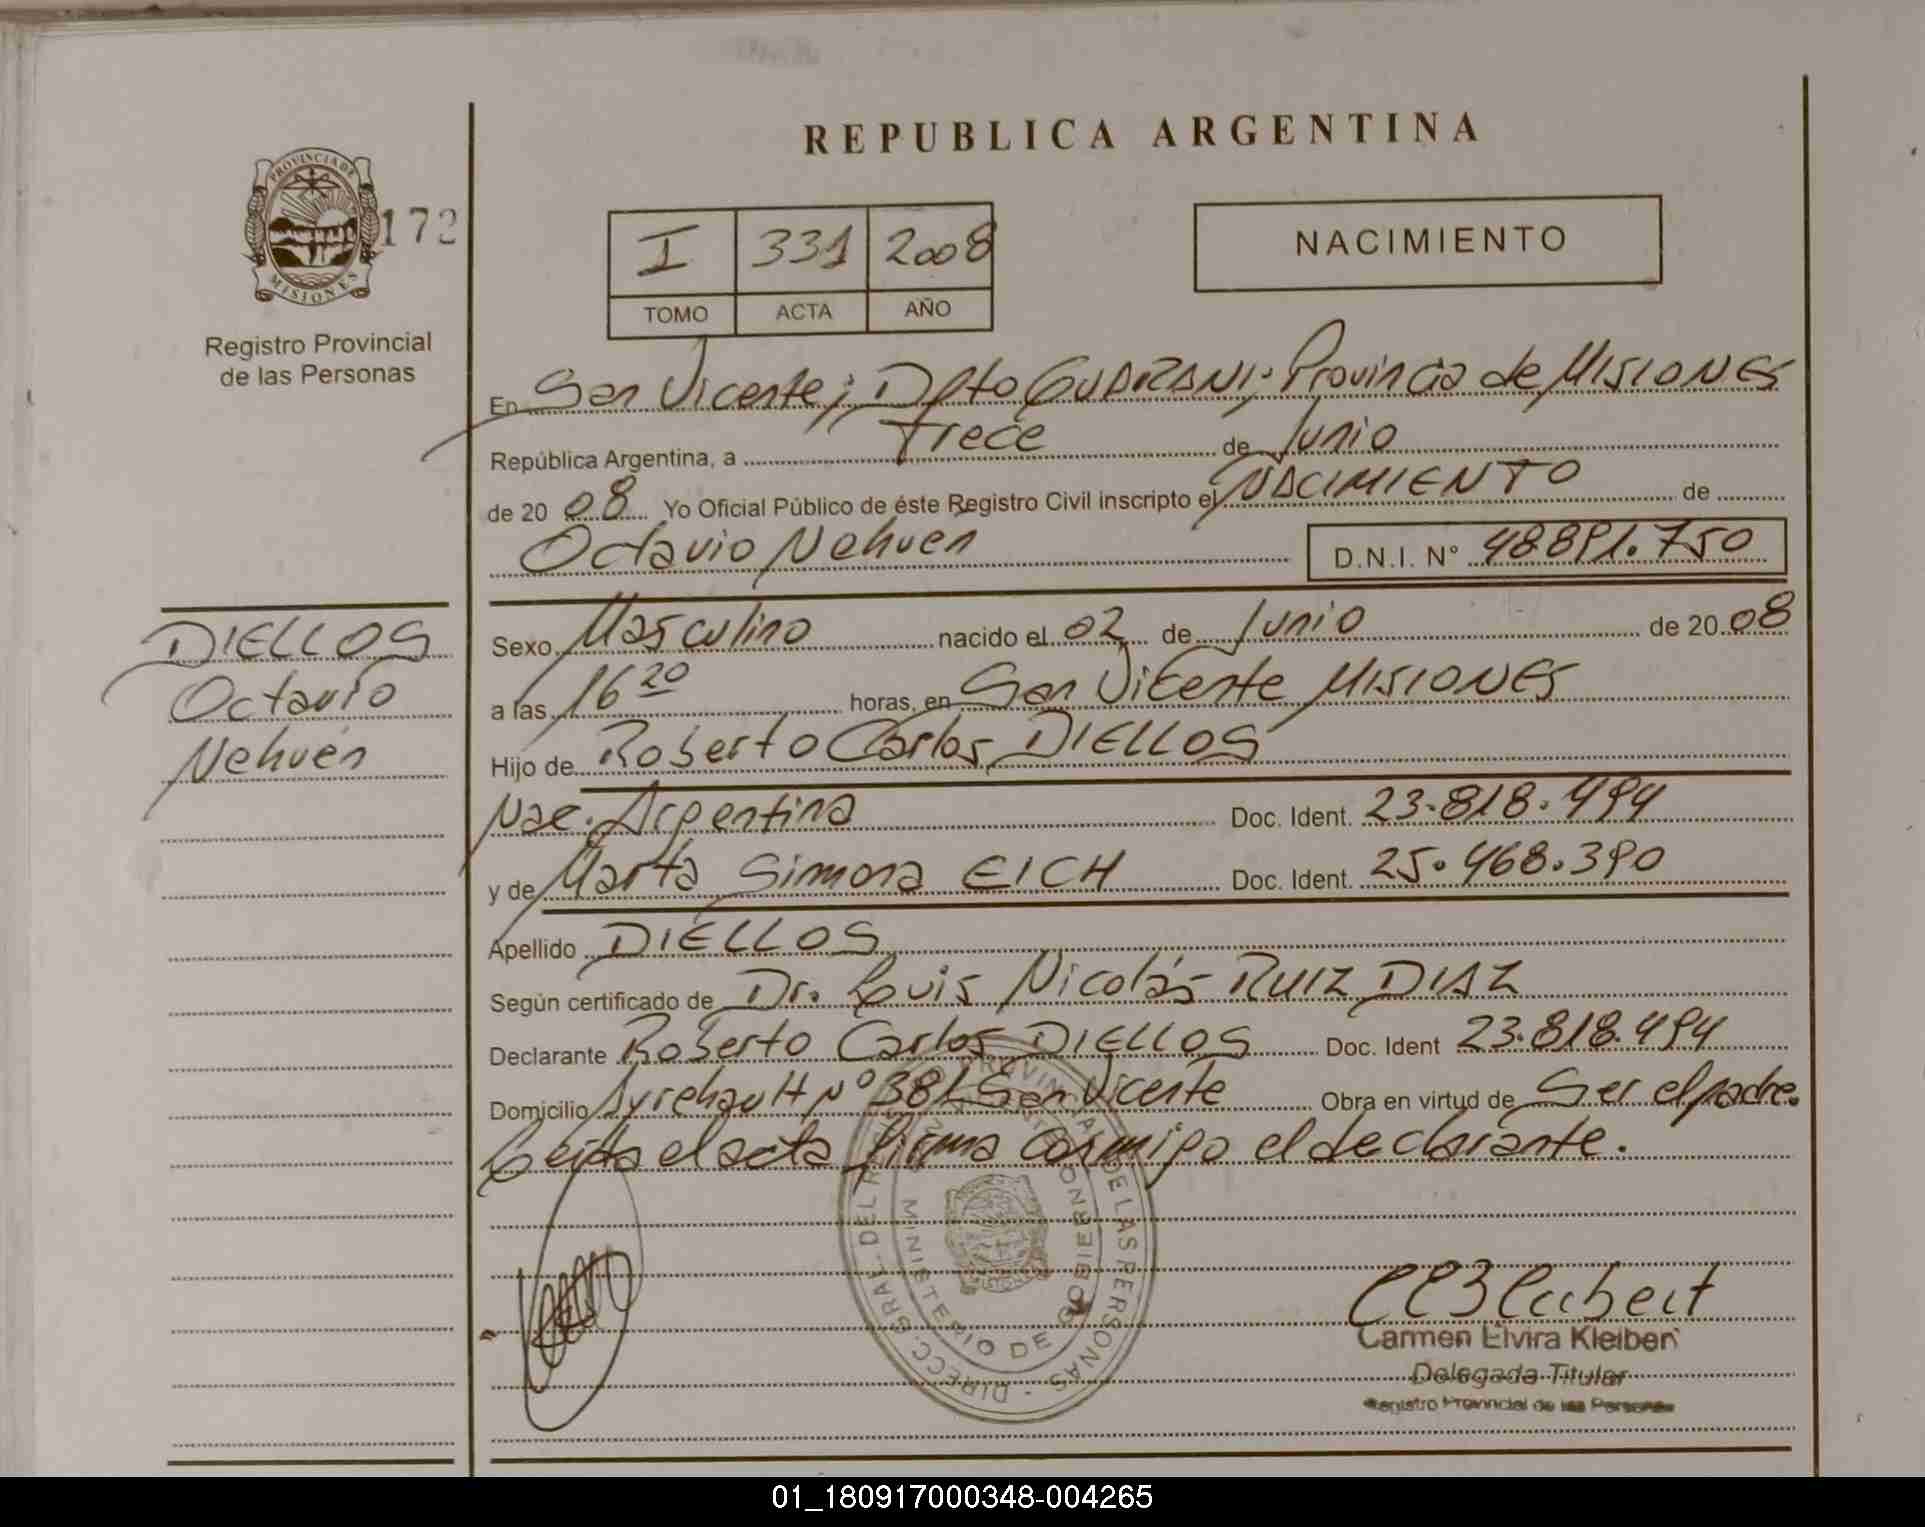 REPUBLICA ARGENTINA
PROVINCIA DE
MISIONES
172
Registro Provincial
de las Personas
I 331 2008
TOMO ACTA AÑO
NACIMIENTO
En San Vicente; Dpto GUARANI; Provincia de MISIONES
República Argentina, a Trece de Junio
de 20 08 Yo Oficial Público de éste Registro Civil inscripto el NACIMIENTO de
Octavio Nehuen D.N.I. N° 48891.750
DIELLOS
Octavio
Nehuen
Sexo Masculino nacido el 02 de Junio de 20 08
a las 16 20 horas, en San Vicente MISIONES
Hijo de Roberto Carlos DIELLOS
Nac. Argentina Doc. Ident. 23.818.494
y de Marta Simona EICH Doc. Ident. 25.468.390
Apellido DIELLOS
Según certificado de Dr. Luis Nicolás RUIZ DIAZ
Declarante Roberto Carlos DIELLOS Doc. Ident 23.818.494
Domicilio N° San Vicente Obra en virtud de Ser el padre.
Leida el acta firma conmigo el declarante.
DIRECC. GRAL. DEL PROVINCIAL DE LAS PERSONAS
MINISTERIO DE GOBIERNO
Carmen Elvira Kleibert
Delegada Titular
Registro Provincial de las Personas
01_180917000348-004265